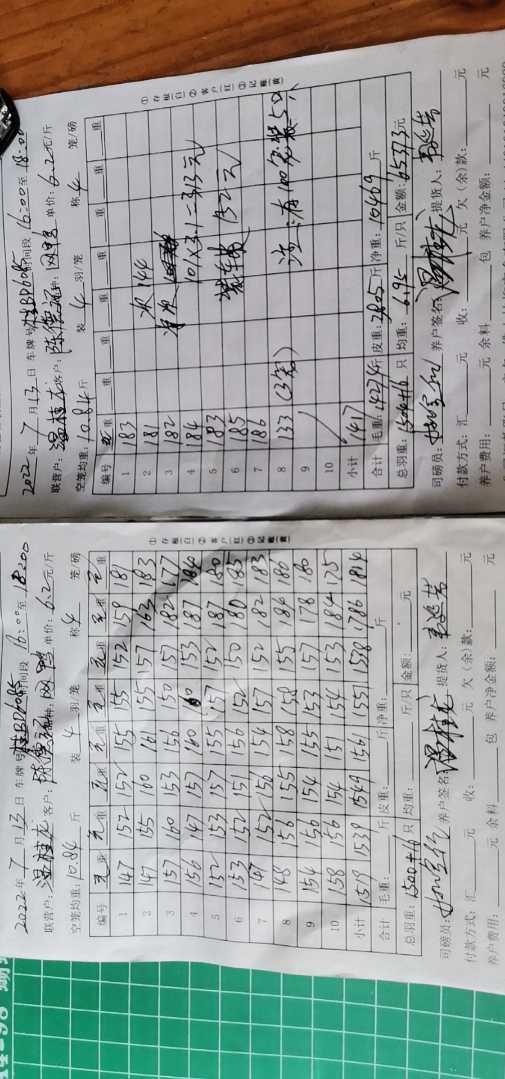 2022年 7 月 13 日 车牌号 桂BD6085 时间段 16:00 至 18:00
联营户: 温桂龙 客户: 陈德记 种: 网鸭 单价: 6.2 元/斤
空笼均重: 10.84 斤 装 4 羽/笼 称 4 笼/磅
编号 毛重 毛重 毛重 毛重 毛重 毛重 毛重 毛重
1 147 152 152 155 155 152 159 181
2 147 155 160 161 155 157 163 183
3 157 160 153 156 150 157 182 177
4 156 147 157 160 153 187 184
5 152 153 157 155 157 152 187 180
6 153 152 151 156 152 150 180 185
7 147 152 156 154 157 152 182 183
8 148 156 155 158 158 155 186 180
9 154 156 154 155 153 157 178 186
10 158 156 154 151 154 153 184 175
小计 1519 1539 1549 1561 1551 1538 1786 1814
合计 毛重: 斤 皮重: 斤 净重: 斤
总羽重: 1500+16 只 均重: 斤/只 金额: 元
司磅员: 养户签名: 温桂龙 提货人:
付款方式: 汇 元 收: 元 欠(余)款: 元
养户费用: 元 余料 包 养户净金额: 元
①存根白 ②客户红 ③记账黄
2022年 7 月 13 日 车牌号 桂BD6085 时间段 16:00 至 18:00
联营户: 温桂龙 客户: 陈德记 种: 网鸭 单价: 6.2 元/斤
空笼均重: 10.84 斤 装 4 羽/笼 称 4 笼/磅
编号 毛重 重 重 重 重 重 重 重
1 183
2 181 次 144
3 182
4 184 101×3.1=313元
5 183
6 185 装车费 132元
7 186
8 133 (3笼) 注:有100笼装50只
9
10
小计 1417
合计 毛重: 14274 斤 皮重: 3805 斤 净重: 10469 斤
总羽重: 1500+16 只 均重: 6.95 斤/只 金额: 65773 元
司磅员: 养户签名: 温桂龙 提货人:
付款方式: 汇 元 收: 元 欠(余)款: 元
养户费用: 元 余料 包 养户净金额: 元
①存根白 ②客户红 ③记账黄